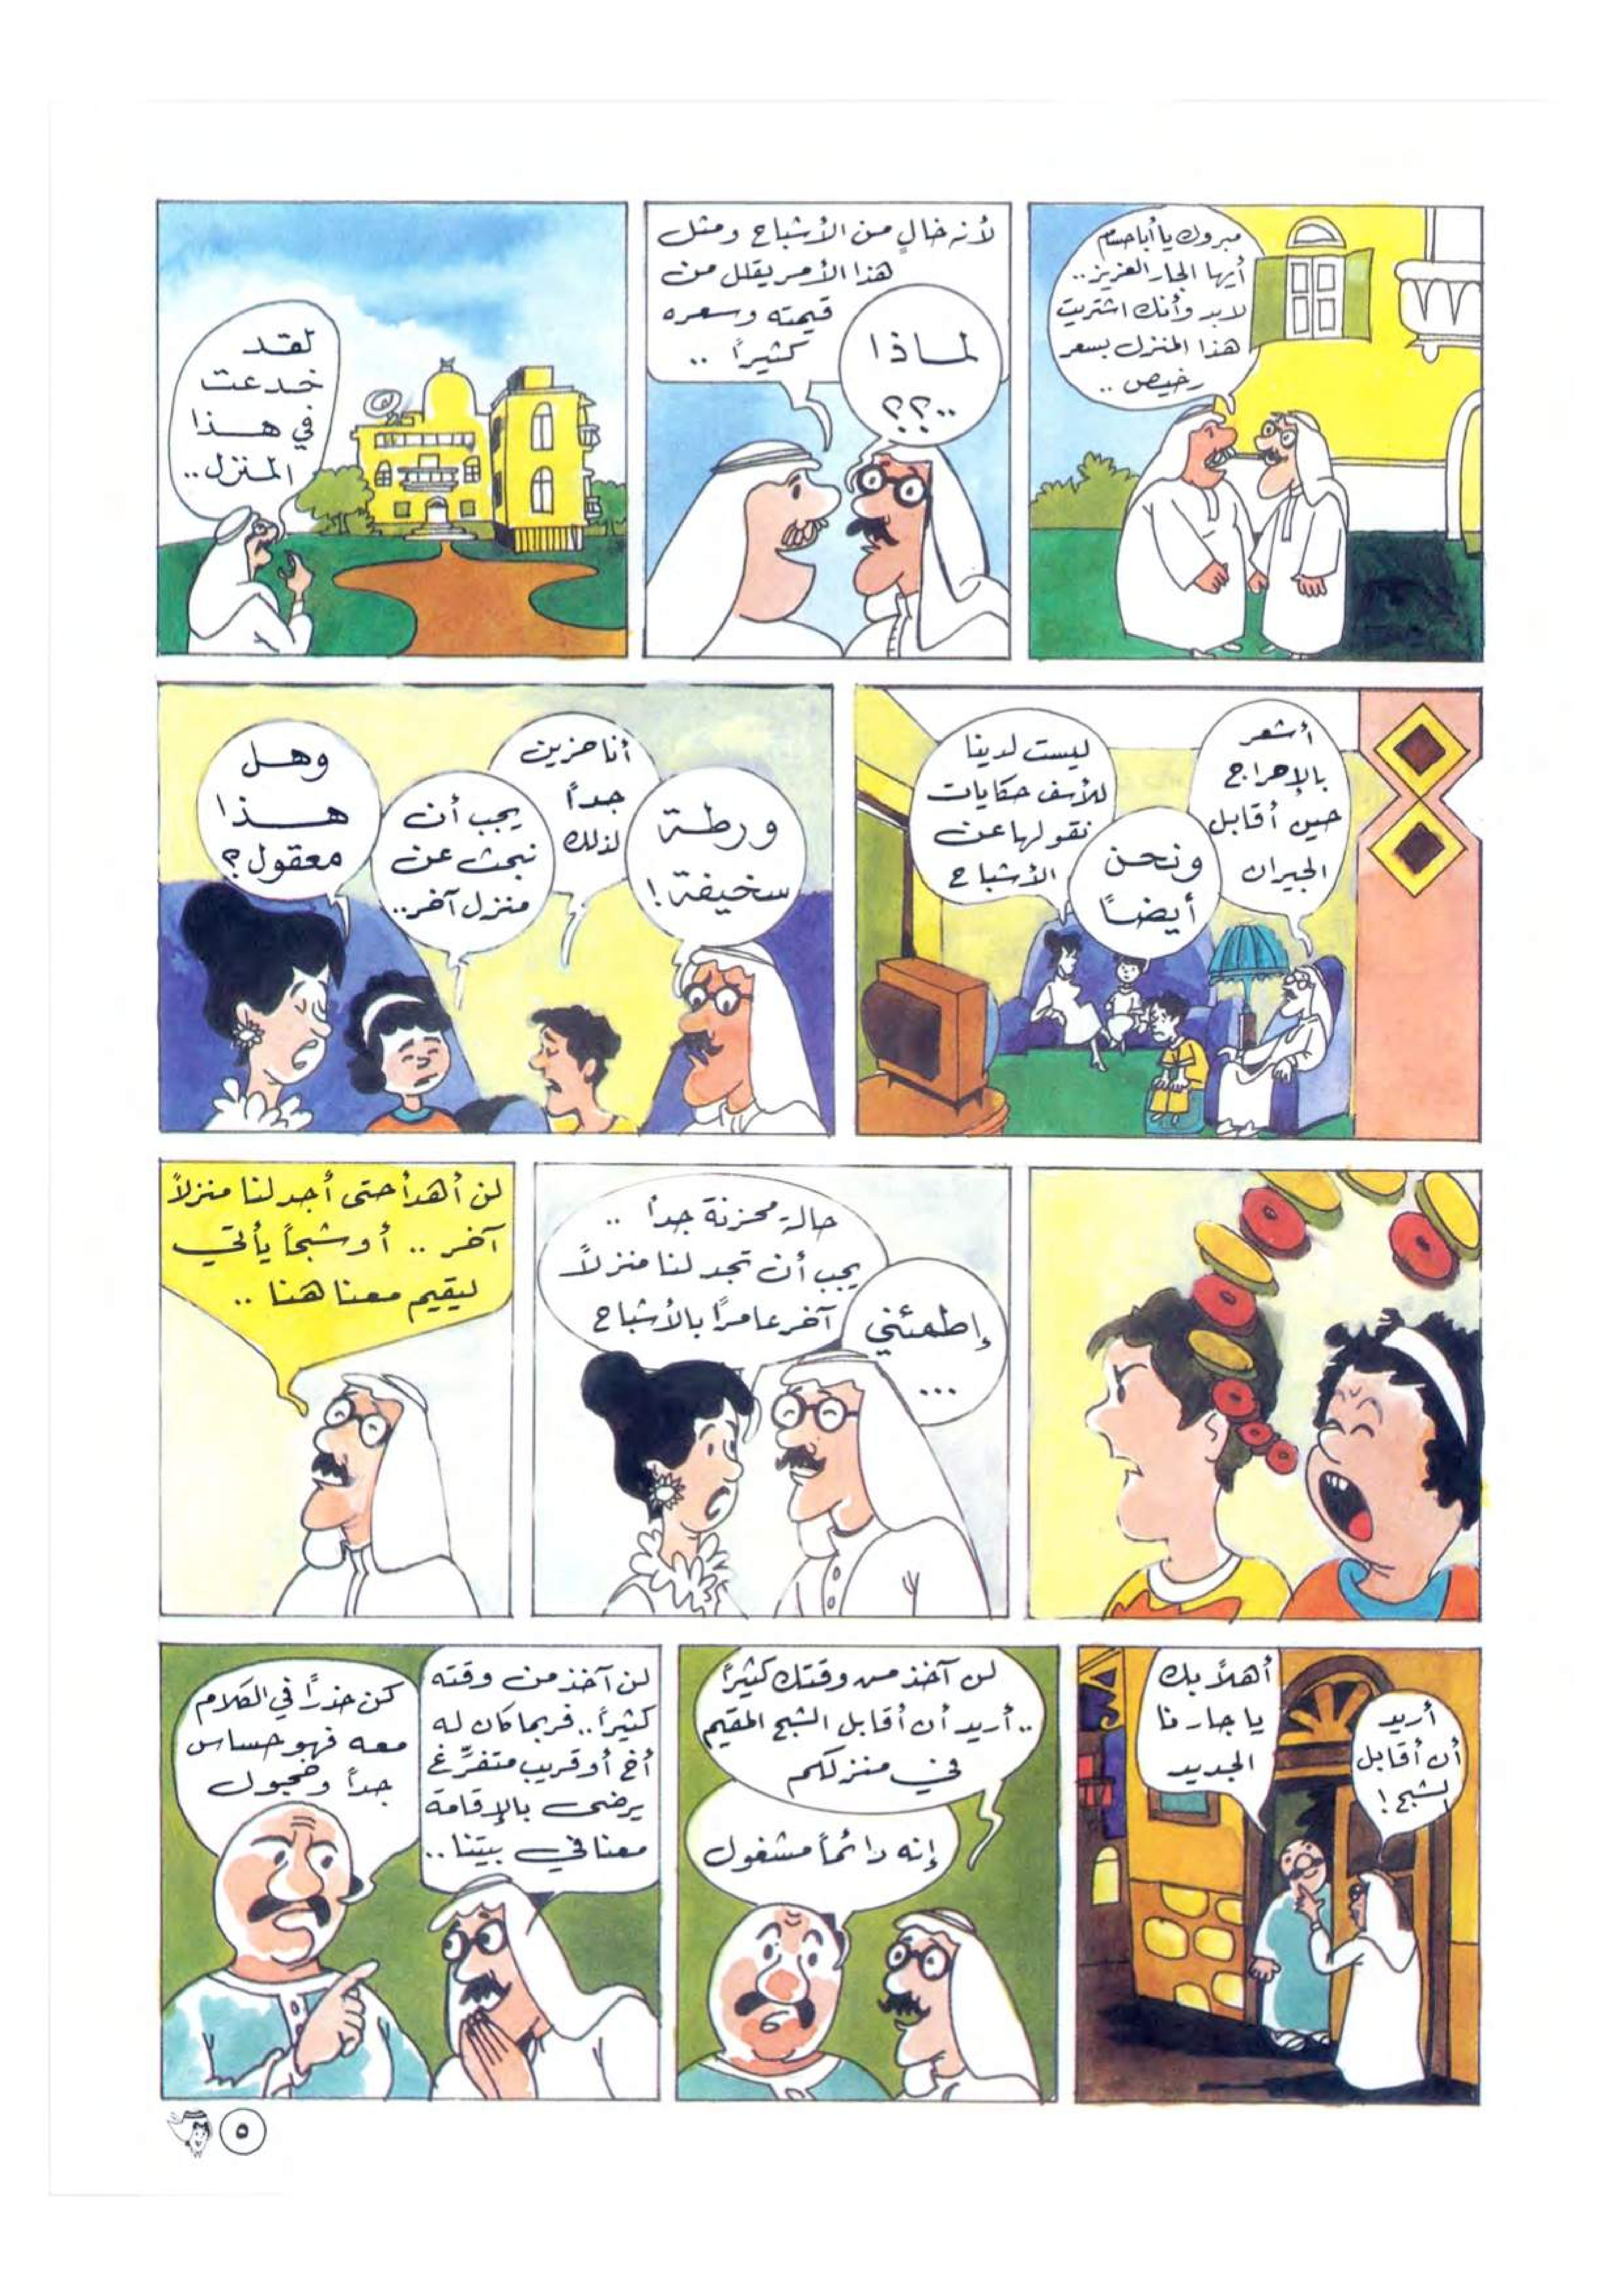 مبروك يا أبا حسام
أيها الجار العزيز..
لابد وأنك اشتريت
هذا المنزل بسعر
رخيص ..
لماذا
..؟؟
لأنه خالٍ من الأشباح ومثل
هذا الأمر يقلل من
قيمته وسعره
كثيراً ..
لقد
خدعت
في هذا
المنزل..
أشعر
بالإحراج
حين أقابل
الجيران
ونحن
أيضاً
ليست لدينا
للأسف حكايات
نقولها عن
الأشباح
ورطة
سخيفة!
أنا حزين
جداً
لذلك
يجب أن
نبحث عن
منزل آخر..
وهل
هذا
معقول؟
حالة محزنة جداً ..
يجب أن تجد لنا منزلاً
آخر عامراً بالأشباح
إطمئني
...
لن أهدأ حتى أجد لنا منزلاً
آخر .. أو شبحاً يأتي
ليقيم معنا هنا ..
أريد
أن أقابل
الشبح!
أهلاً بك
يا جارنا
الجديد
لن آخذ من وقتك كثيراً
.. أريد أن أقابل الشبح المقيم
في منزلكم
إنه دائماً مشغول
لن آخذ من وقته
كثيراً.. فربما كان له
أخ أو قريب متفرِّغ
يرضى بالإقامة
معنا في بيتنا..
كن حذراً في الكلام
معه فهو حساس
جداً وخجول
٥